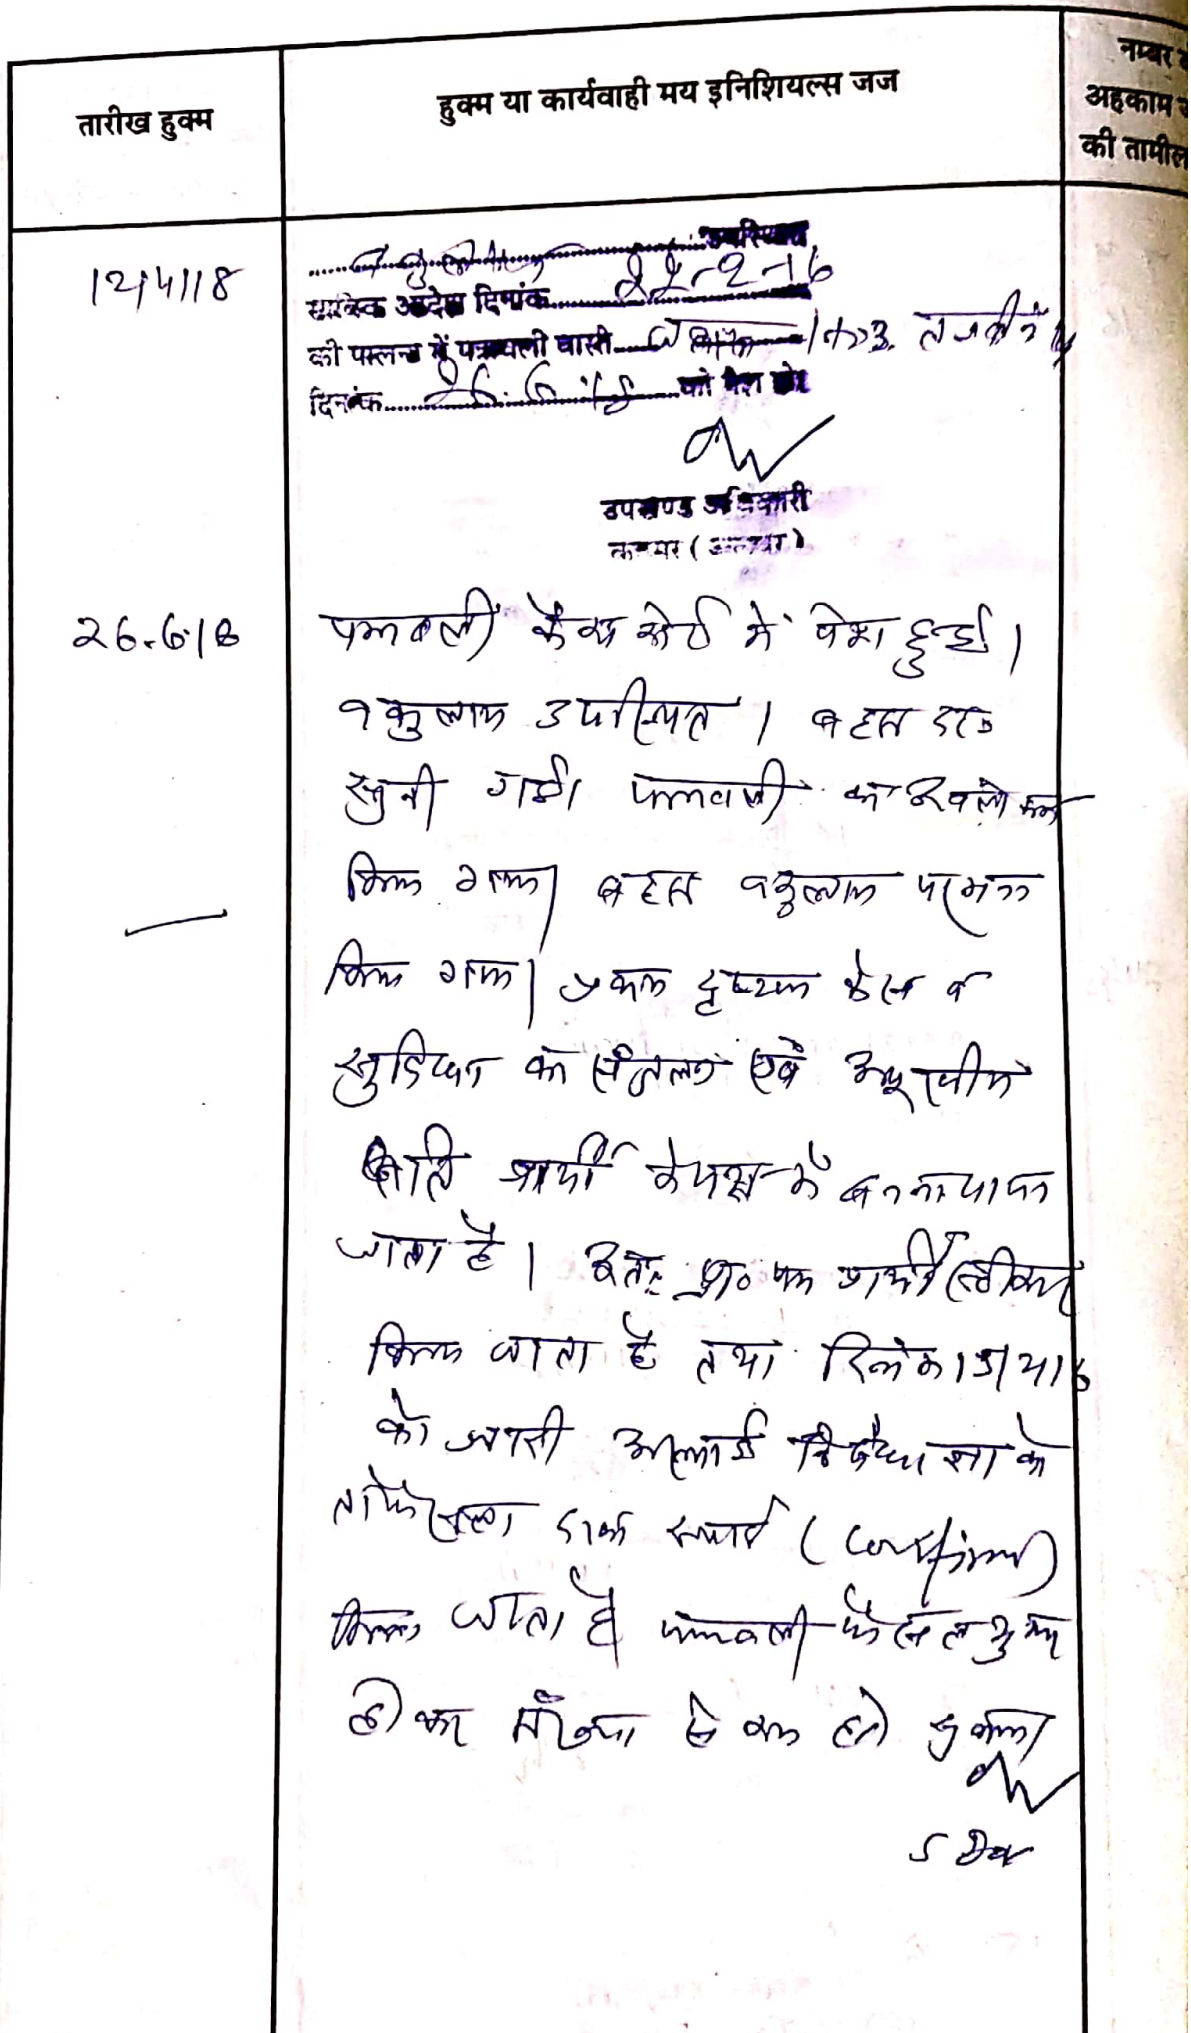 तारीख हुक्म
हुक्म या कार्यवाही मय इनिशियल्स जज
नम्बर
अहकाम
की तामील
12/4/18
उपस्थित
साबिक आदेश दिनांक 22-2-16
की पालना में पत्रावली वास्ते
दिनांक 26.6.18 को पेश हो।
उपखण्ड अधिकारी
कठूमर (अलवर)
26.6.18
पत्रावली कैम्प कोर्ट में पेश हुई।
वकुलाय उपस्थित। बहस
सुनी गई। पत्रावली का अवलोकन
किया गया। बहस वकुलाय पर मनन
किया गया। प्रथम दृष्टया केस व
सुविधा का संतुलन एवं अपूरणीय
क्षति प्रार्थी के पक्ष में बनना पाया
जाता है। अतः प्रा० पत्र प्रार्थी स्वीकार
किया जाता है तथा दिनांक
को जारी अस्थाई निषेधाज्ञा को
ताफैसला (Confirm)
किया जाता है पत्रावली फैसल शुमार
होकर